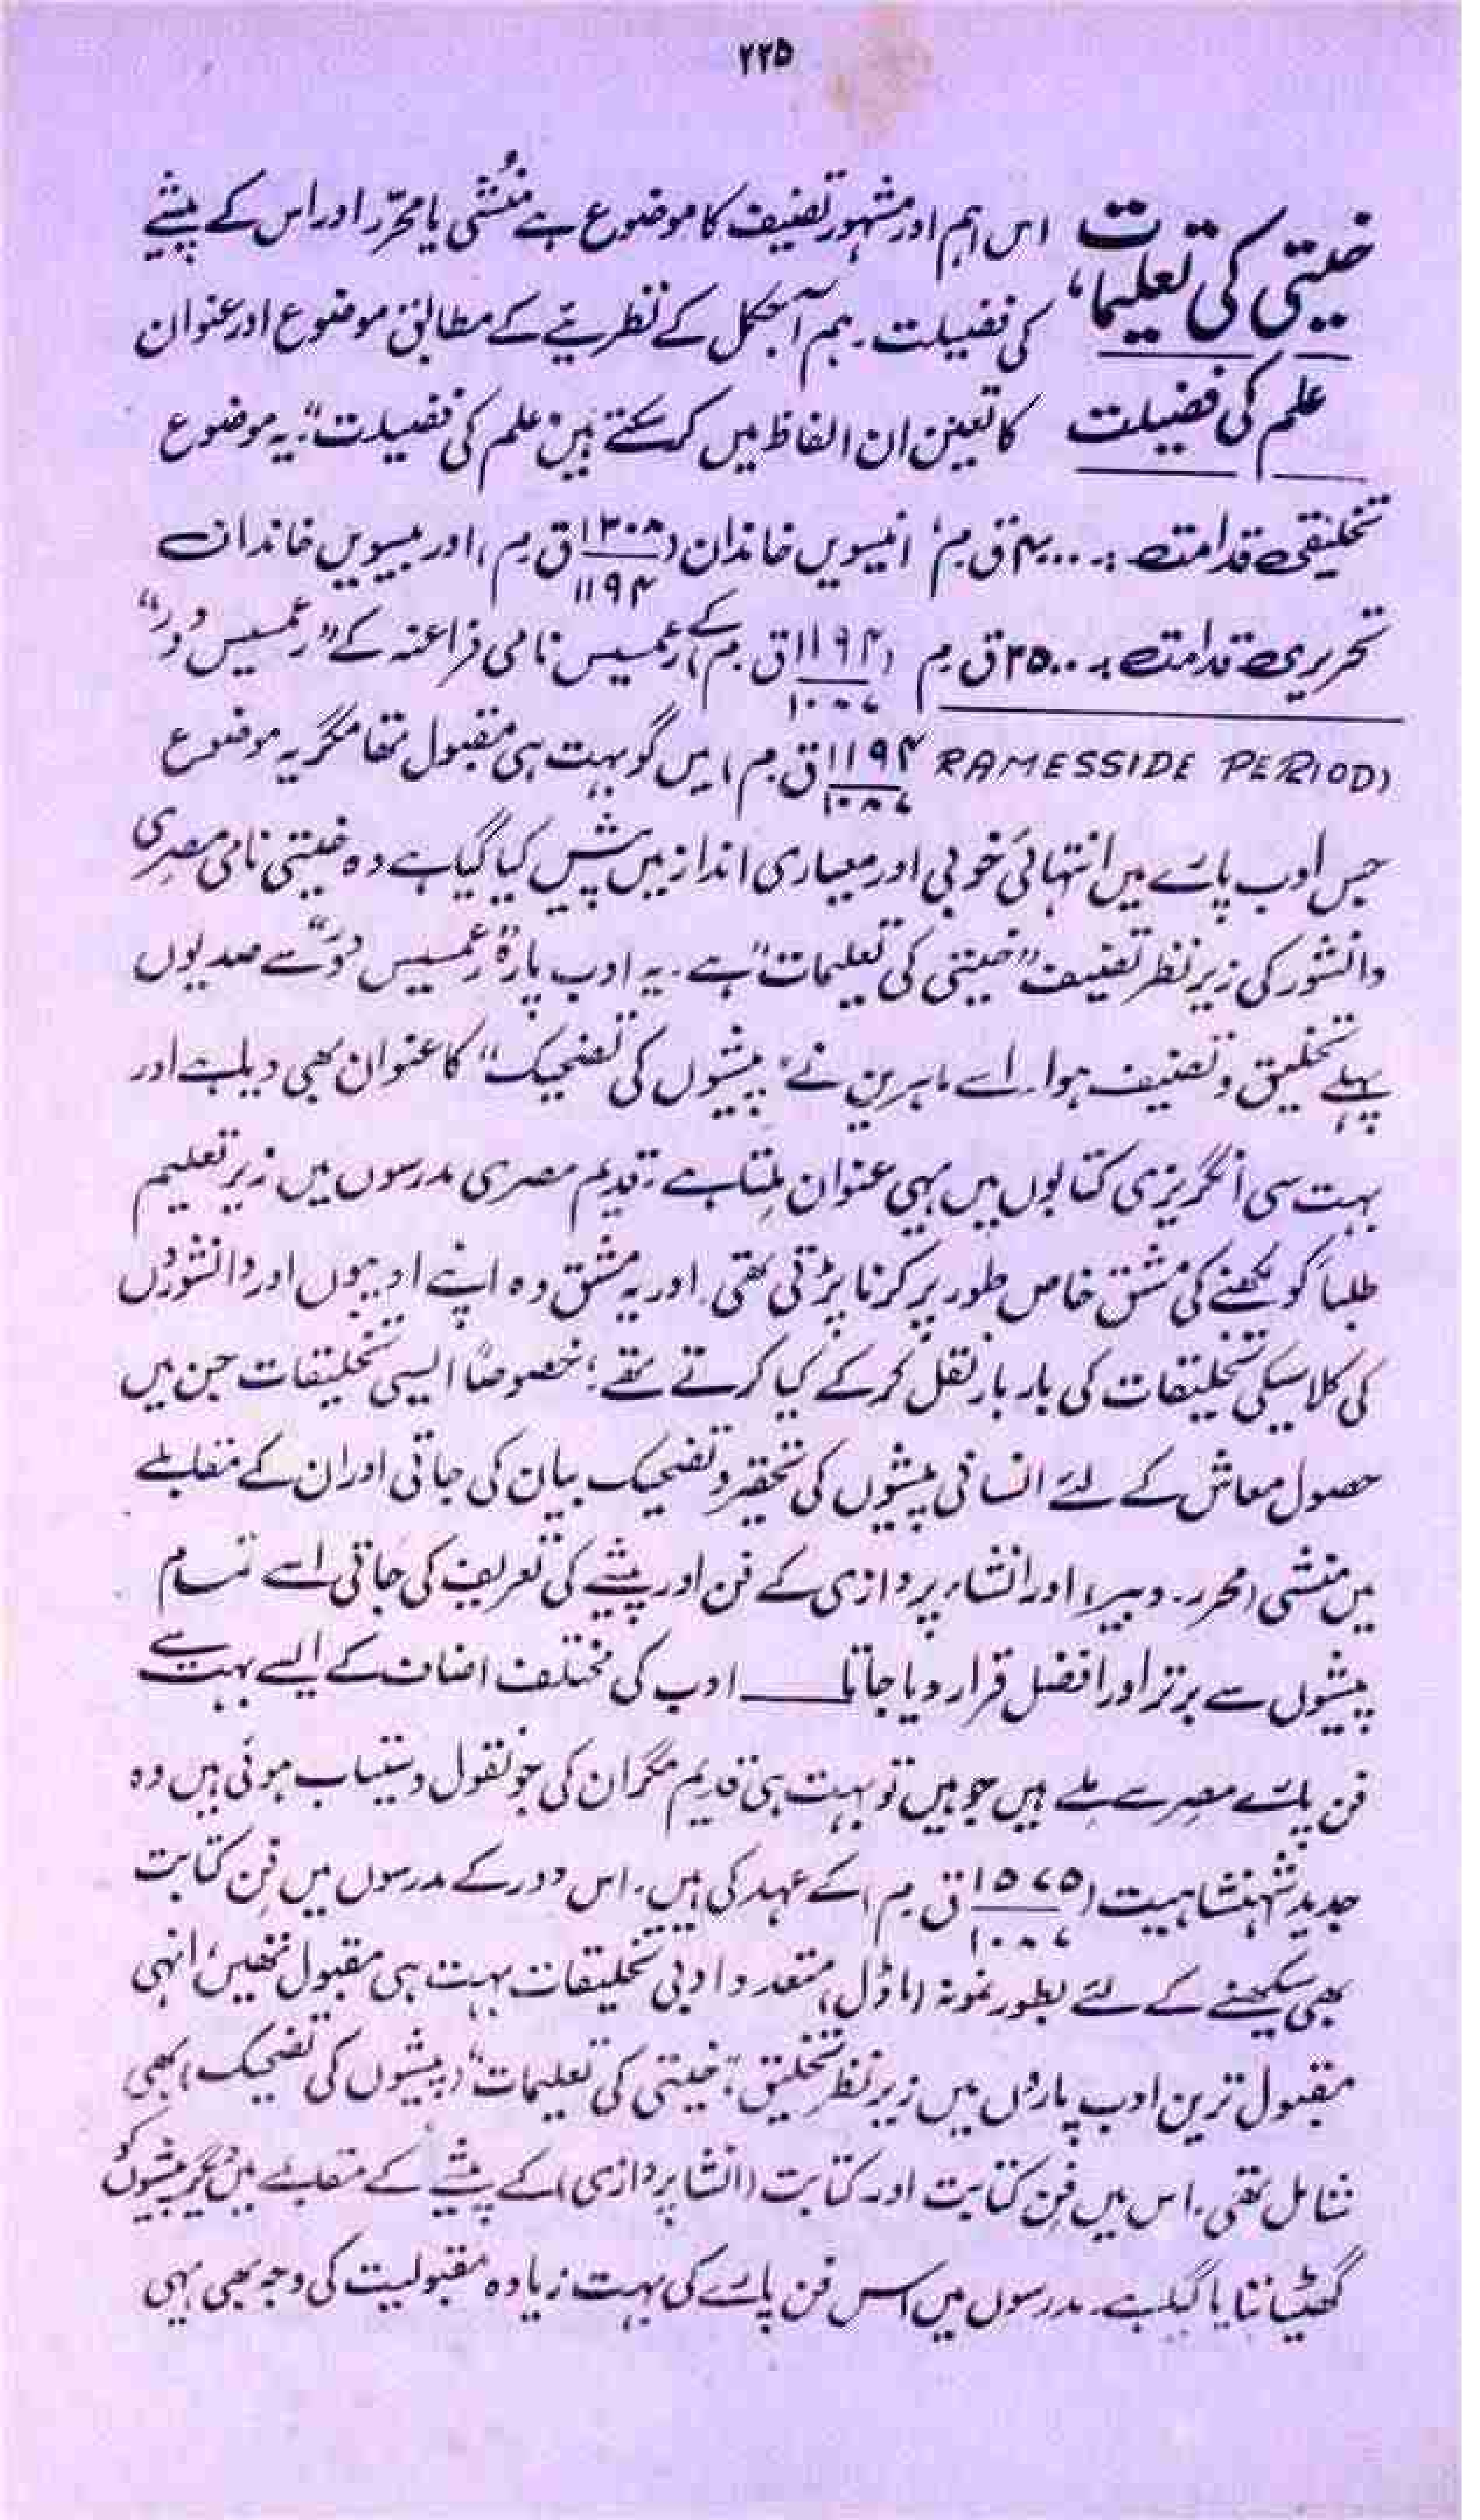 ۲۲۵
خیتی کی تعلیمات، اس اہم اور مشہور تصنیف کا موضوع ہے مُنشی یا محرّر اور اس کے پیشے
کی فضیلت۔ ہم آجکل کے نظریئے کے مطابق موضوع اور عنوان
علم کی فضیلت کا تعین ان الفاظ میں کر سکتے ہیں علم کی فضیلت“۔ یہ موضوع
تخلیقی قدامت :۔ ۴۰۰۰ ق م، انیسویں خاندان (۱۳۰۸/۱۱۹۴ ق م) اور بیسویں خاندان
تحریری قدامت :۔ ۲۵۰۰ ق م (۱۱۹۴/۱۰۸۷ ق م) کے رعمسیس نامی فراعنہ کے ”رعمسیس دور“
(RAMESSIDE PERIOD ۱۱۹۴/۱۰۸۷ ق م) میں گو بہت ہی مقبول تھا مگر یہ موضوع
جس ادب پارے میں انتہائی خوبی اور معیاری انداز میں پیش کیا گیا ہے وہ خیتی نامی مصری
دانشور کی زیر نظر تصنیف ”خیتی کی تعلیمات“ ہے۔ یہ ادب پارہ ”رعمسیس دور“ سے صدیوں
پہلے تخلیق و تصنیف ہوا۔ اسے ماہرین نے ”پیشوں کی تضحیک“ کا عنوان بھی دیا ہے اور
بہت سی انگریزی کتابوں میں یہی عنوان مِلتا ہے۔ قدیم مصری مدرسوں میں زیر تعلیم
طلبأ کو لکھنے کی مشق خاص طور پر کرنا پڑتی تھی۔ اور یہ مشق وہ اپنے ادیبوں اور دانشوروں
کی کلاسیکی تخلیقات کی بار بار نقل کر کے کیا کرتے تھے؛ خصوصاً ایسی تخلیقات جن میں
حصول معاش کے لئے انسانی پیشوں کی تحقیر و تضحیک بیان کی جاتی اور ان کے مقابلے
میں منشی (محرر۔ دبیر) اور انشاء پردازی کے فن اور پیشے کی تعریف کی جاتی اسے تمام
پیشوں سے برتر اور افضل قرار دیا جاتا ـــــ ادب کی مختلف اصناف کے ایسے بہت سے
فن پارے مصر سے ملے ہیں جو ہیں تو بہت ہی قدیم مگر ان کی جو نقول دستیاب ہوئی ہیں وہ
جدید شہنشاہیت (۱۵۷۵/۱۰۸۷ ق م) کے عہد کی ہیں۔ اس دور کے مدرسوں میں فنِ کتابت
بھی سیکھنے کے لئے بطور نمونہ (ماڈل) متعدد ادبی تخلیقات بہت ہی مقبول تھیں، انہی
مقبول ترین ادب پاروں میں زیر نظر تخلیق ”خیتی کی تعلیمات“ (پیشوں کی تضحیک) بھی
شامل تھی۔ اس میں فنِ کتابت اور کتابت (انشا پردازی) کے پیشے کے مقابلے میں دیگر پیشوں کو
گھٹیا بتایا گیا ہے۔ مدرسوں میں اس فن پارے کی بہت زیادہ مقبولیت کی وجہ بھی یہی